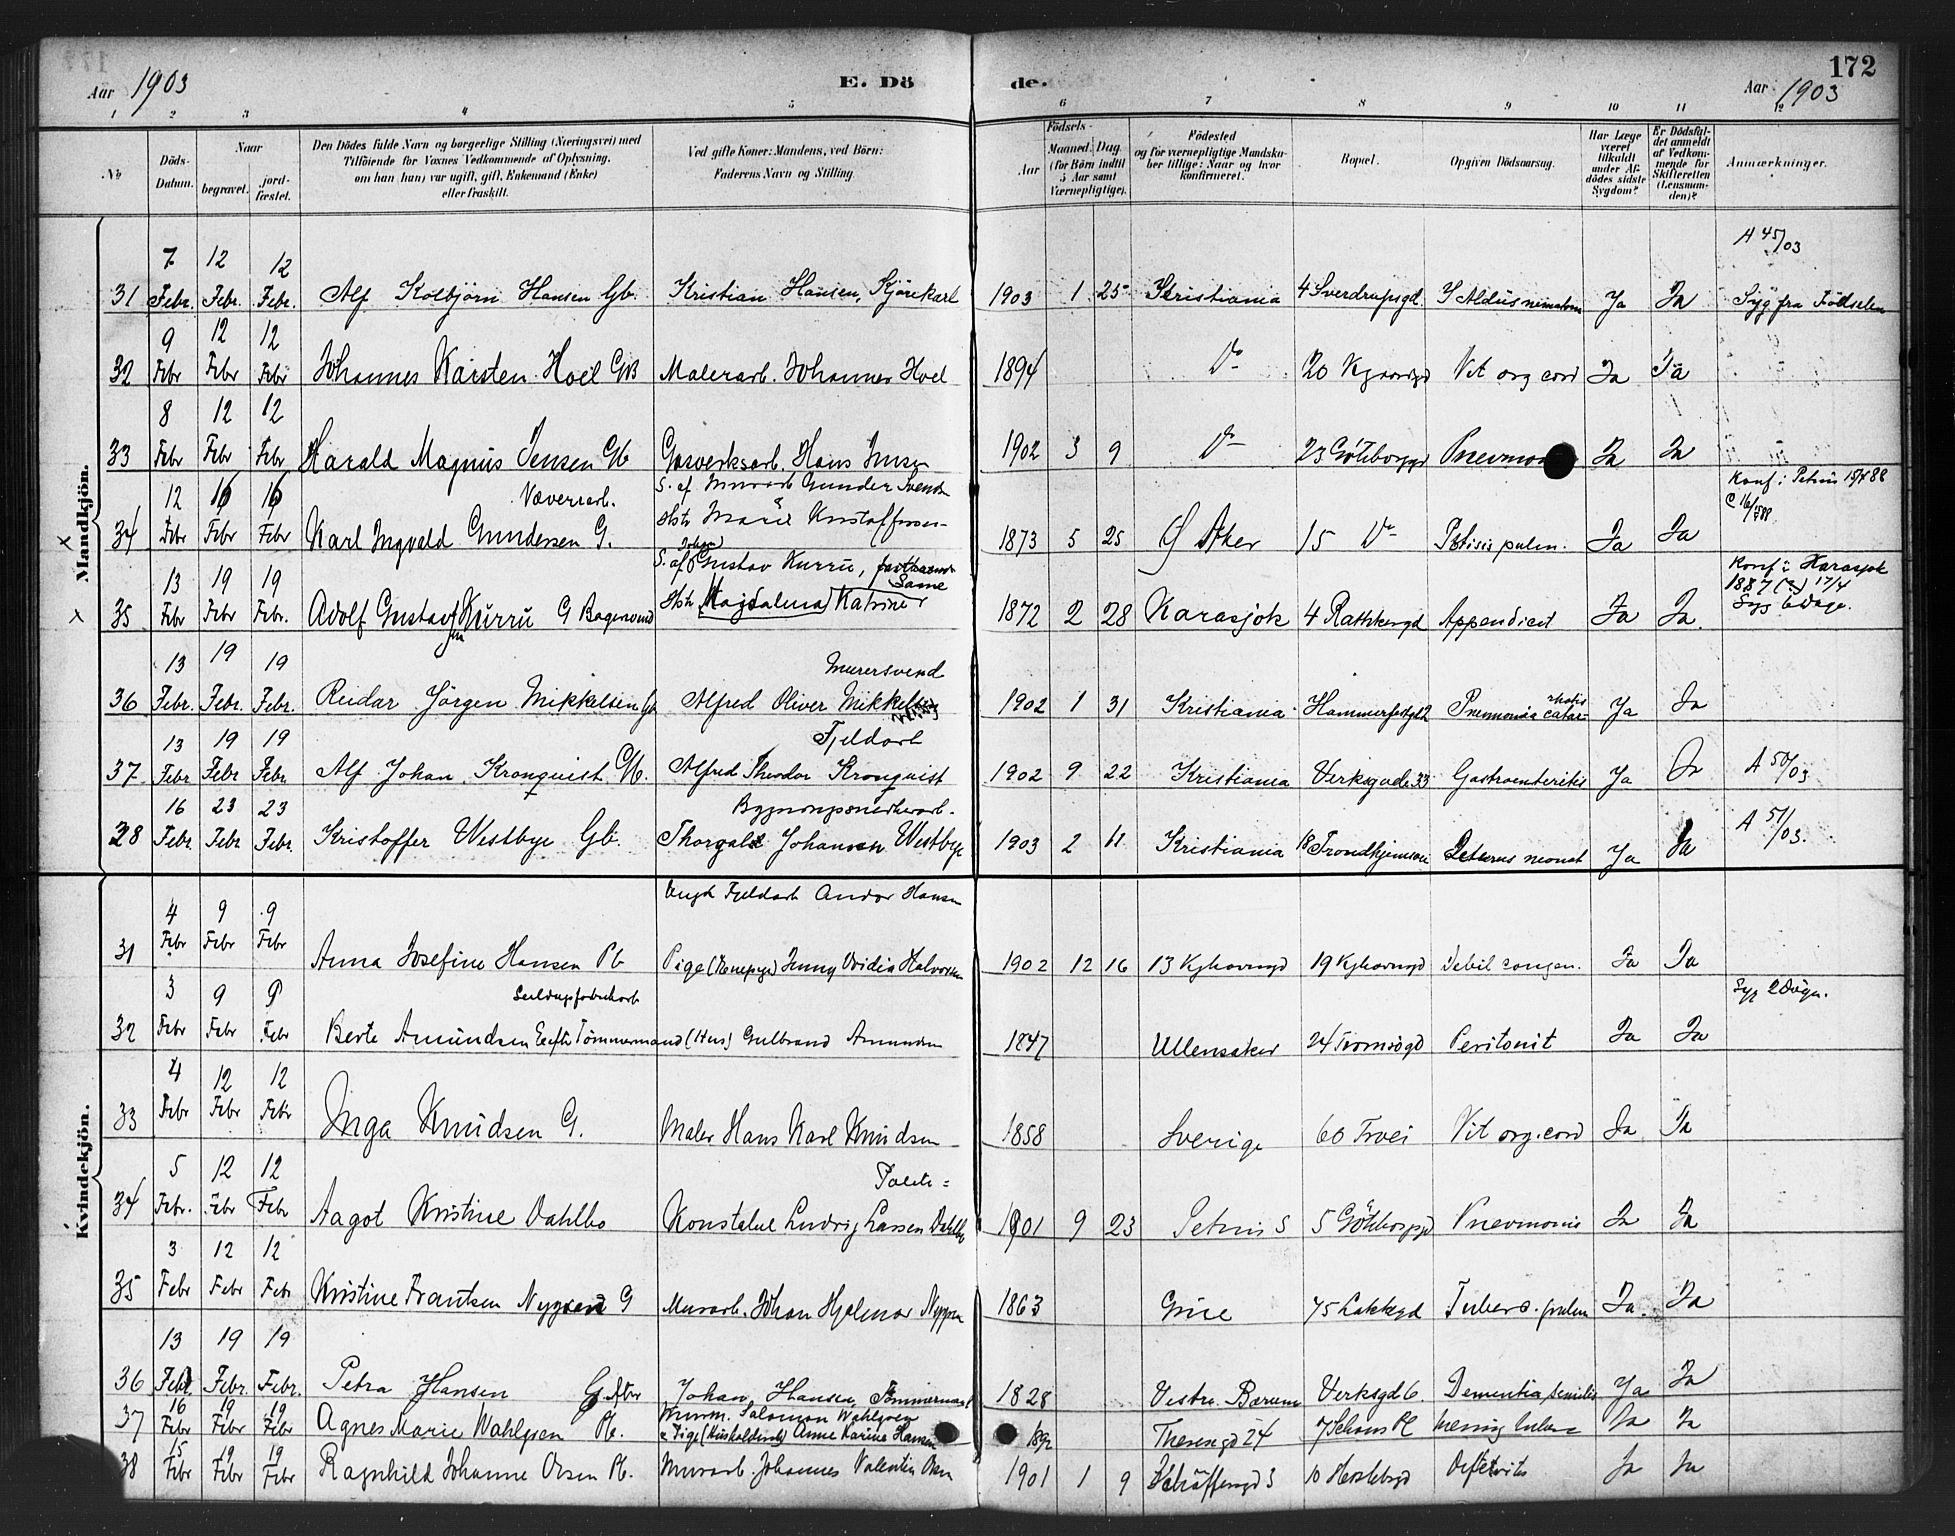 172
Aar 1903
E. Dö
de.
Aar 1903
1 2 3 4 5 6 7 8 9 10 11 12
No
Döds-Datum.
Naar
begravet.
jord-fæstet.
Den Dödes fulde Navn og borgerlige Stilling (Næringsvei) med
Tilföiende for Voxnes Vedkommende af Oplysning,
om han (hun) var ugift, gift, Enkemand (Enke)
eller fraskilt.
Ved gifte Koner: Mandens, ved Börn:
Faderens Navn og Stilling
Födsels-
Aar
Maaned. Dag
(for Börn indtil
5 Aar samt
Værnepligtige).
Födested
og for værnepligtige Mandska-
ber tillige: Naar og hvor
konfirmeret.
Bopæl.
Opgiven Dödsaarsag.
Har Læge
været
tilkaldt
under Af-
dödes sidste
Sygdom?
Er Dödsfal-
det anmeldt
af Vedkom-
mende for
Skifteretten
(Lensman-
den)?
Anmærkninger.
Mandkjön.
7 12 12 A 45/03
31 Febr. Febr. Febr. Alf Kolbjörn Hansen Gb. Kristian Hansen, Kjörekarl 1903 1 25 Kristiania 4 Sverdrupsgd. Ja Ja Syg fra Födselen
9 12 12
32 Febr Febr Febr Johannes Karsten Hoel GB Malerarb. Johannes Hoel 1894 Do Vit org cord Ja Ja
8 12 12
33 Febr Febr Febr Harald Magnus Jensen Gb Gasverksarb. Hans Jensen 1902 3 9 Do 23 Göteborggd Ja Ja
12 16 16 Væverarb. S. af Murarb Gunder Svends Konf: Petrus 15/4 88
34 Febr Febr Febr Karl Ingvald Gundersen G. Hstr Marie Kristoffersen 1873 5 25 Ø Aker 15 Do Ptisis pulm. Ja Ja
13 19 19 S. af Johan Gustav Kurru, Same Konf i Karasjok
1887 (?) 17/4
35 Febr Febr Febr. Adolf Gustav Kurru G Bagersvend Hstr Magdalena Katrine 1872 2 28 Karasjok 4 Rathkesgd Appendicit Ja Ja. Syg 6 Dage.
13 19 19 Murersvend
36 Febr. Febr. Febr. Reidar Jörgen Mikkelsen Gb Alfred Oliver Mikkelsen 1902 1 31 Kristiania Hammerfestgt 2 Pnemonia catar- Ja Ja
13 19 19 Fjeldarb
37 Febr Febr Febr. Alf Johan Kronquist Gb. Alfred Theodor Kronquist 1902 9 22 Kristiania Verksgade 33 Gastroenteritis Ja Ja A 50/03
16 23 23 Bygningssnedkerarb. A 51/03.
38 Febr. Febr Febr. Kristoffer Westbye Gb. Thorvald Johansen Westbye 1903 2 11 Kristiania 18 Trondhjemsvei Icterus neonat Ja Ja
Kvindekjön.
4 9 9 Ungk Fjeldarb Andor Hansen
31 Febr Febr Febr Anna Josefine Hansen Pb Pige Jenny Halvorsen 1902 12 16 13 Kjhavngd 19 Kjhavngd Debil congen. Ja Ja
3 9 9 Syg 2 Dage.
32 Febr Febr Febr Berte Amundsen Tömmermand (Hus) Gulbrand Amundsen 1847 Ullensaker 24 Tromsögd Peritonit Ja Ja
4 12 12
33 Febr Febr Febr Inga Knudsen G. Maler Hans Karl Knudsen 1858 Sverige 60 Trvei Vit org. cord Ja Ja
5 12 12 Politi=
34 Febr. Febr Febr Aagot Kristine Dahlbo Konstabel Ludvig Larsen Dahlbo 1901 9 23 Petrus S 5 Göteborggd Pnevmonie Ja Ja
3 12 12
35 Febr Febr Febr Kristine Frantsen Nygren G Murarb. Johan Hjalmar Nygren 1863 Grue 75 Lakkegd Tuberc. pulm Ja. Ja
13 19 19
36 Febr Febr. Febr. Petra Hansen Johan Hansen, Tömmermand 1828 Vestre Bærum Verksgd 6. Dementia senilis Ja Ja
16 19 19 Murm. Salomon Wahlgren
37 Febr Febr Febr Agnes Marie Wahlgren Pb. Anne Karine Hansen Theresegd 24 7 Schous Pl Ja Ja
15 19 19
38 Febr Febr Febr Ragnhild Johanne Olsen Pb. Murarb. Johannes Valentin Olsen 1901 1 9 10 Herslebsgd Ja Ja